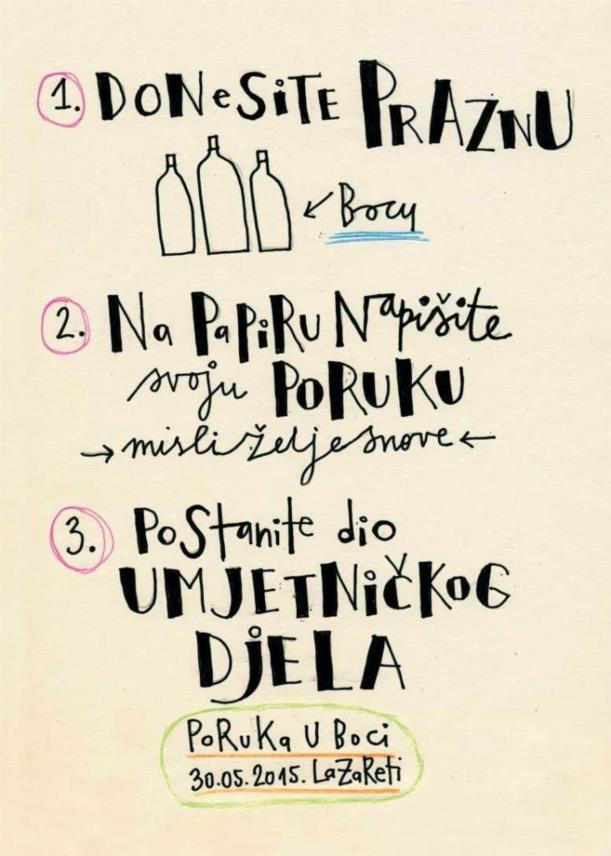 1. DONeSiTE PRAZNU
Bocy
2. Na PaPiRU Napišite
svoju PoRUKU
misli želje snove
3. PoStanite dio
UMJETNiČKoG
DjELA
PoRuKa U Boci
30.05.2015. LaZaReti